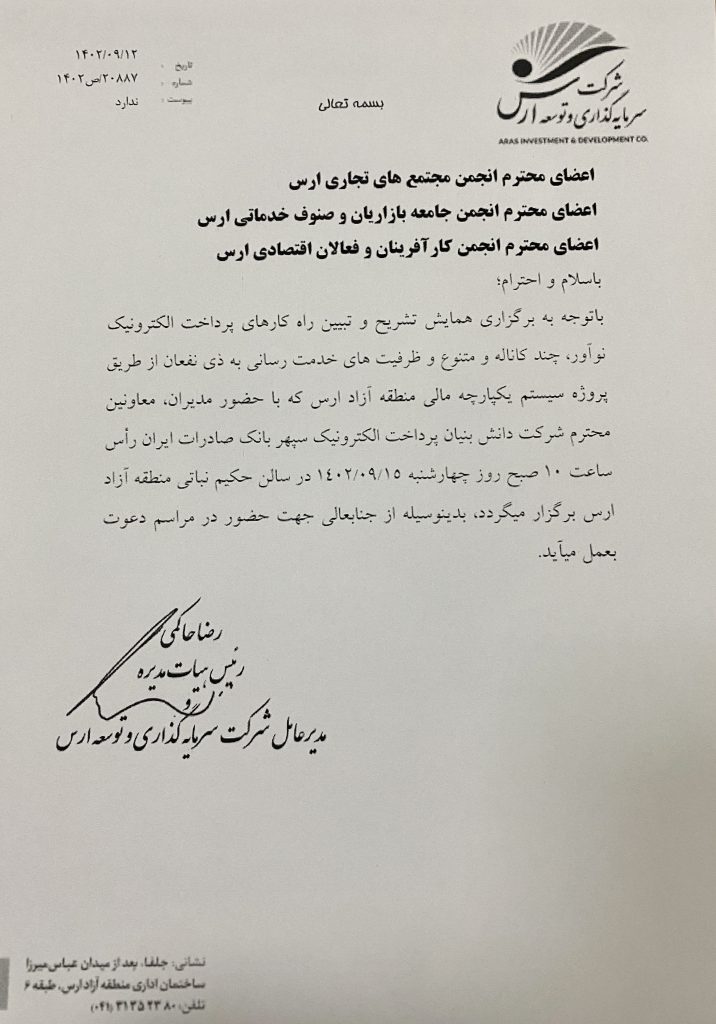 شرکت
سرمایه گذاری و توسعه ارس
ARAS INVESTMENT & DEVELOPMENT CO.
تاریخ : ۱۴۰۲/۰۹/۱۲
شماره : ۲۰۸۸۷/ص۱۴۰۲
پیوست : ندارد
بسمه تعالی
اعضای محترم انجمن مجتمع های تجاری ارس
اعضای محترم انجمن جامعه بازاریان و صنوف خدماتی ارس
اعضای محترم انجمن کارآفرینان و فعالان اقتصادی ارس
باسلام و احترام؛
باتوجه به برگزاری همایش تشریح و تبیین راه کارهای پرداخت الکترونیک
نوآور، چند کاناله و متنوع و ظرفیت های خدمت رسانی به ذی نفعان از طریق
پروژه سیستم یکپارچه مالی منطقه آزاد ارس که با حضور مدیران، معاونین
محترم شرکت دانش بنیان پرداخت الکترونیک سپهر بانک صادرات ایران رأس
ساعت ۱۰ صبح روز چهارشنبه ۱۴۰۲/۰۹/۱۵ در سالن حکیم نباتی منطقه آزاد
ارس برگزار میگردد، بدینوسیله از جنابعالی جهت حضور در مراسم دعوت
بعمل میآید.
رضا حاکمی
رئیس هیات مدیره
و
مدیرعامل شرکت سرمایه گذاری و توسعه ارس
نشانی: جلفا، بعد از میدان عباس میرزا
ساختمان اداری منطقه آزاد ارس، طبقه ۶
تلفن: ۸۰ ۲۳ ۳۵ ۳۱ (۰۴۱)